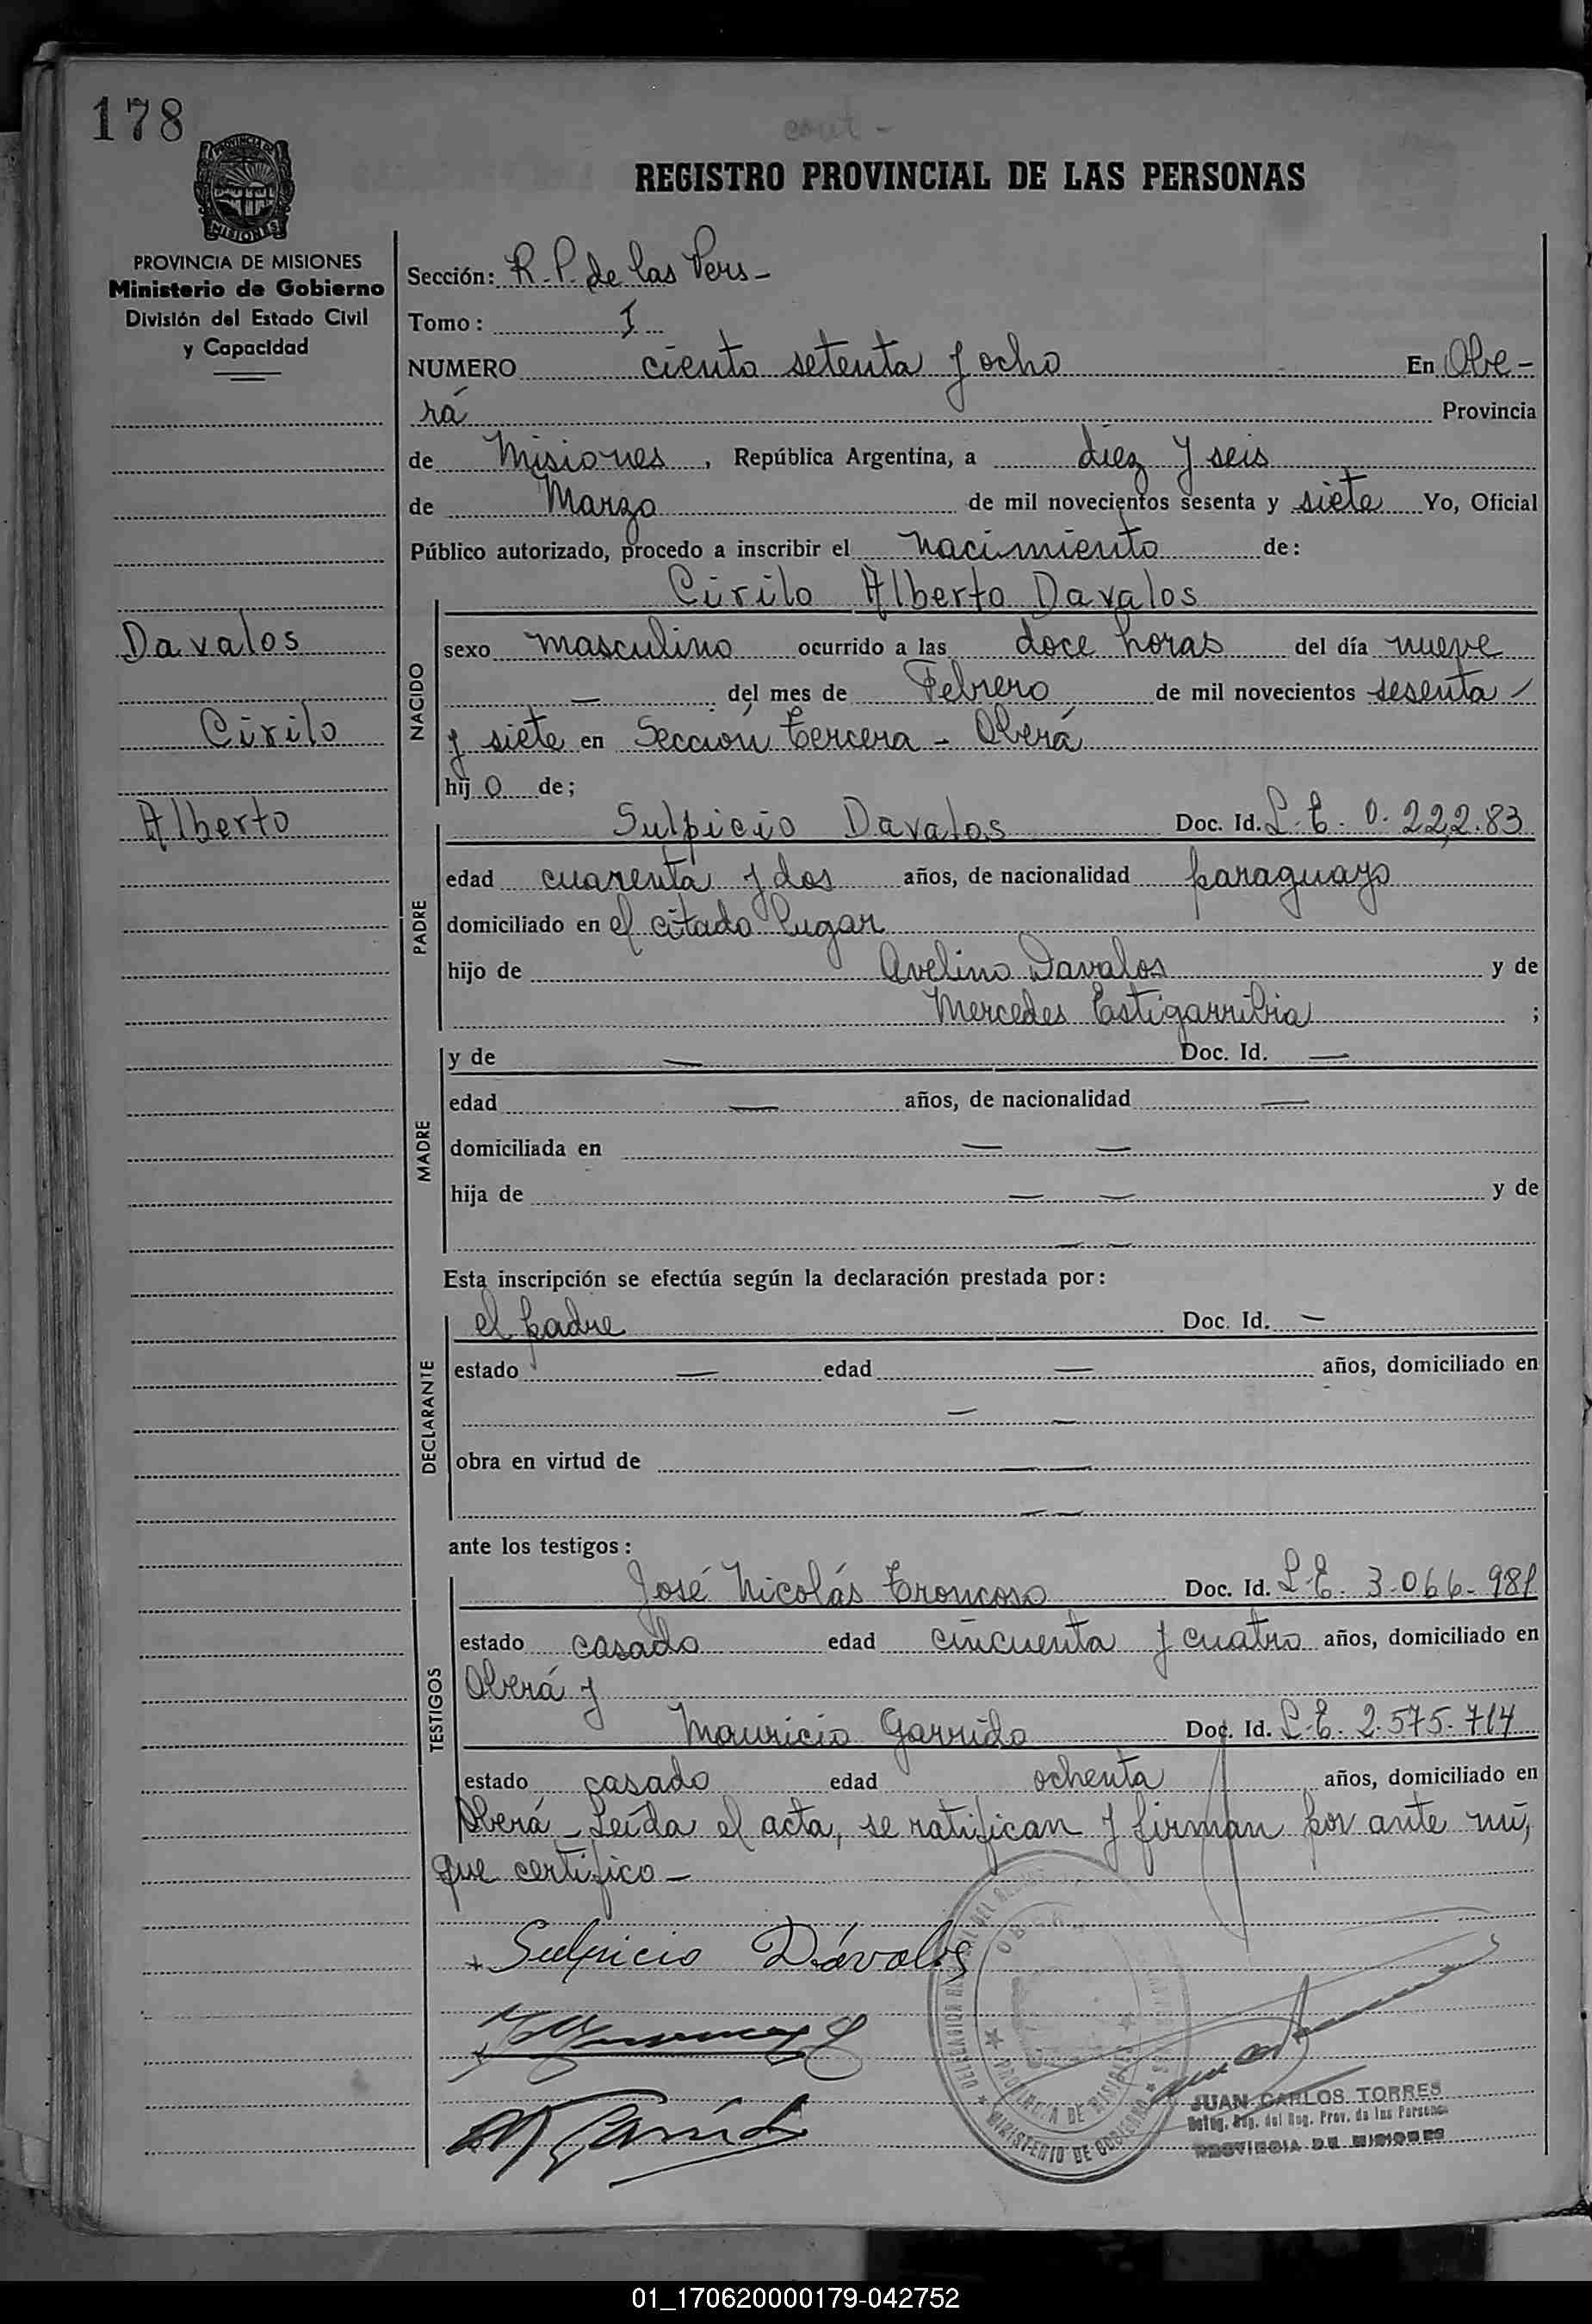 178
cont -
REGISTRO PROVINCIAL DE LAS PERSONAS
PROVINCIA DE MISIONES
Ministerio de Gobierno
División del Estado Civil
y Capacidad
Davalos
Cirilo
Alberto
Sección: R.P. de las Pers -
Tomo: I
NUMERO ciento setenta y ocho En Obe-
rá Provincia
de Misiones, República Argentina, a diez y seis
de Marzo de mil novecientos sesenta y siete Yo, Oficial
Público autorizado, procedo a inscribir el nacimiento de:
Cirilo Alberto Davalos
NACIDO
sexo masculino ocurrido a las doce horas del día nueve
— del mes de Febrero de mil novecientos sesenta
y siete en Sección tercera - Oberá
hijo de;
PADRE
Sulpicio Davalos Doc. Id. L.E. 0.222.83
edad cuarenta y dos años, de nacionalidad paraguayo
domiciliado en el citado lugar
hijo de Avelino Davalos y de
Mercedes Estigarribia ;
MADRE
y de — Doc. Id. —
edad — años, de nacionalidad —
domiciliada en — —
hija de — — y de
— —
Esta inscripción se efectúa según la declaración prestada por:
DECLARANTE
el padre Doc. Id. —
estado — edad — años, domiciliado en
— —
obra en virtud de — —
— —
ante los testigos:
TESTIGOS
José Nicolás Troncoso Doc. Id. L.E. 3.066.981
estado casado edad cincuenta y cuatro años, domiciliado en
Oberá y
Mauricio Garrido Doc. Id. L.E. 2.575.714
estado casado edad ochenta años, domiciliado en
Oberá - Leída el acta, se ratifican y firman por ante mí,
que certifico -
+ Sulpicio Dávalos
OBERÁ
PROVINCIA DE MISIONES
MINISTERIO DE GOBIERNO
JUAN CARLOS TORRES
del Reg. Prov. de las Personas
PROVINCIA DE MISIONES
01_170620000179-042752